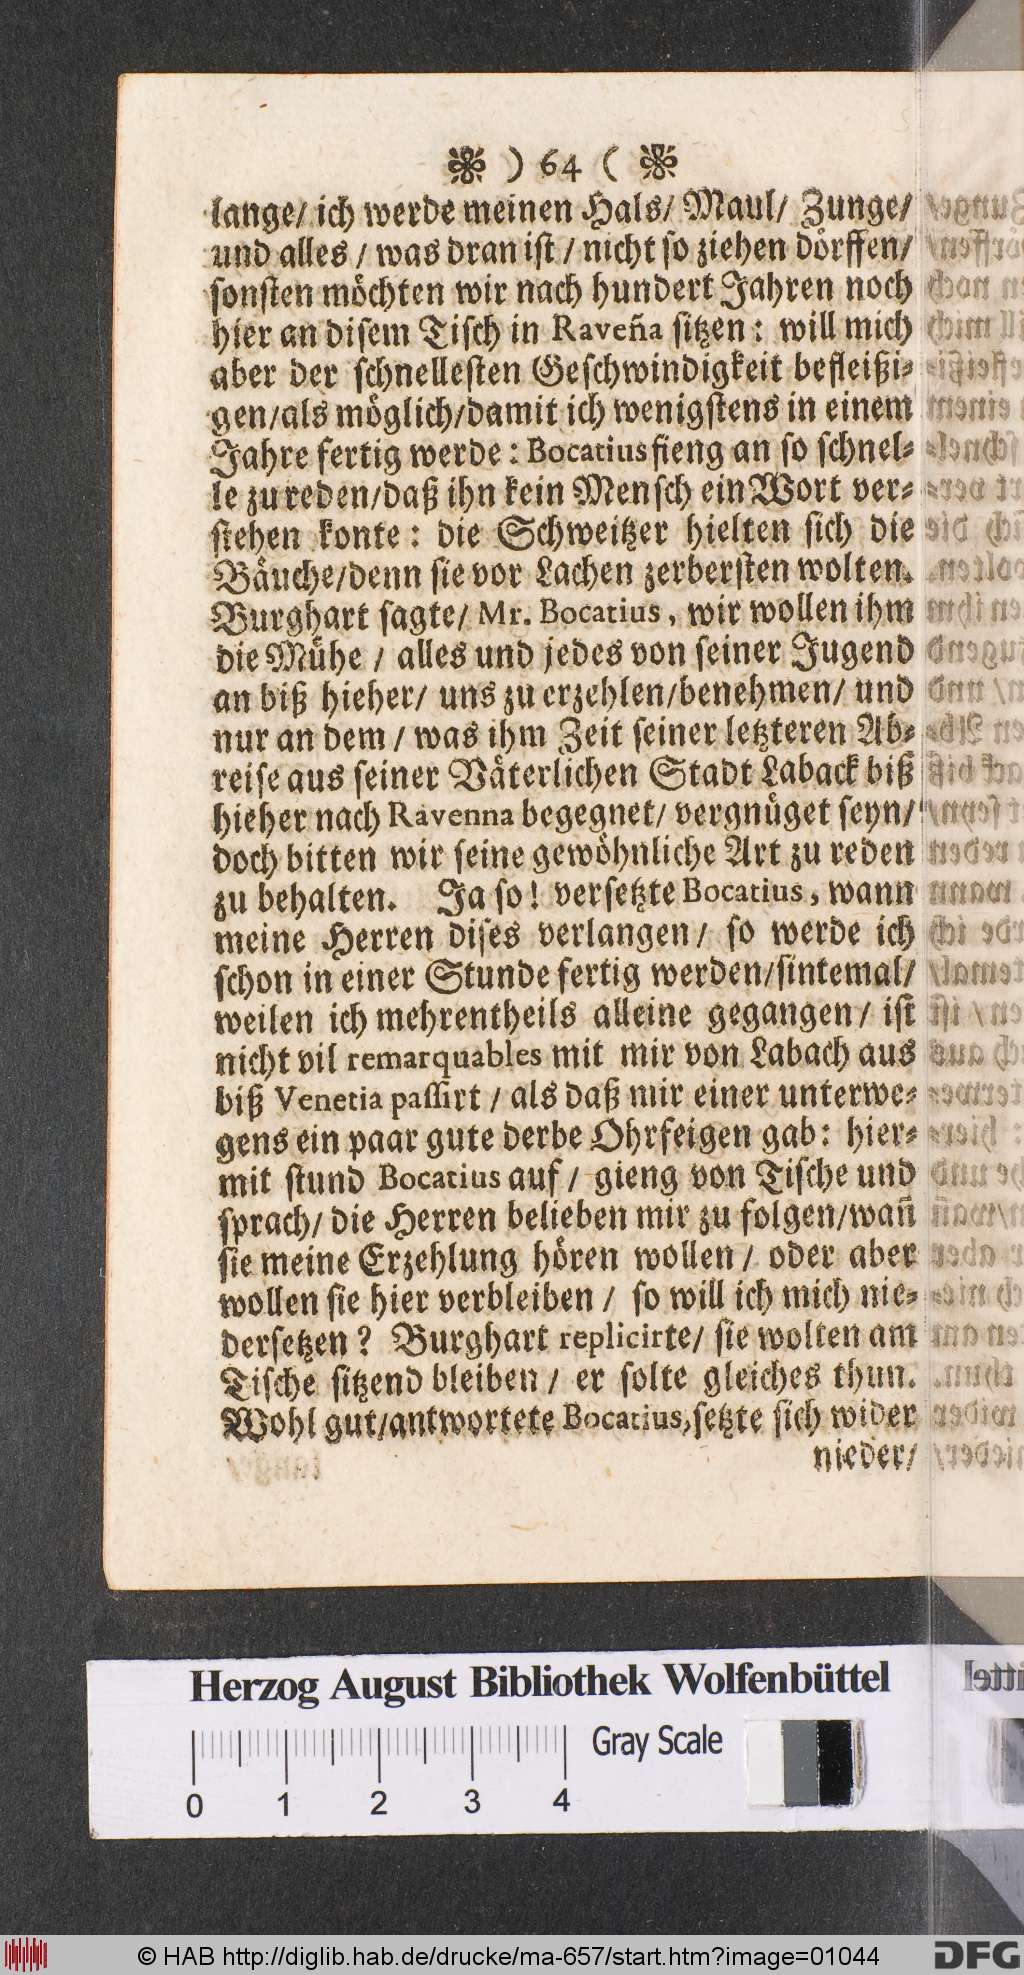 ❀ ) 64 ( ❀
lange/ ich werde meinen Hals/ Maul/ Zunge/
und alles / was dran ist / nicht so ziehen dörffen/
sonsten möchten wir nach hundert Jahren noch
hier an disem Tisch in Raveña sitzen: will mich
aber der schnellesten Geschwindigkeit befleißi-
gen/als möglich/damit ich wenigstens in einem
Jahre fertig werde: Bocatius fieng an so schnel-
le zu reden/daß ihn kein Mensch ein Wort ver-
stehen konte: die Schweitzer hielten sich die
Bäuche/denn sie vor Lachen zerbersten wolten.
Burghart sagte/ Mr. Bocatius, wir wollen ihm
die Mühe / alles und jedes von seiner Jugend
an biß hieher/ uns zu erzehlen/benehmen/ und
nur an dem / was ihm Zeit seiner letzteren Ab-
reise aus seiner Väterlichen Stadt Laback biß
hieher nach Ravenna begegnet/ vergnüget seyn/
doch bitten wir seine gewöhnliche Art zu reden
zu behalten. Ja so! versetzte Bocatius, wann
meine Herren dises verlangen/ so werde ich
schon in einer Stunde fertig werden/sintemal/
weilen ich mehrentheils alleine gegangen/ ist
nicht vil remarquables mit mir von Labach aus
biß Venetia passirt / als daß mir einer unterwe-
gens ein paar gute derbe Ohrfeigen gab: hier-
mit stund Bocatius auf / gieng von Tische und
sprach/ die Herren belieben mir zu folgen/wañ
sie meine Erzehlung hören wollen / oder aber
wollen sie hier verbleiben / so will ich mich nie-
dersetzen? Burghart replicirte/ sie wolten am
Tische sitzend bleiben / er solte gleiches thun.
Wohl gut/antwortete Bocatius, setzte sich wider
nieder/
Herzog August Bibliothek Wolfenbüttel
Gray Scale
0 1 2 3 4
© HAB http://diglib.hab.de/drucke/ma-657/start.htm?image=01044
DFG